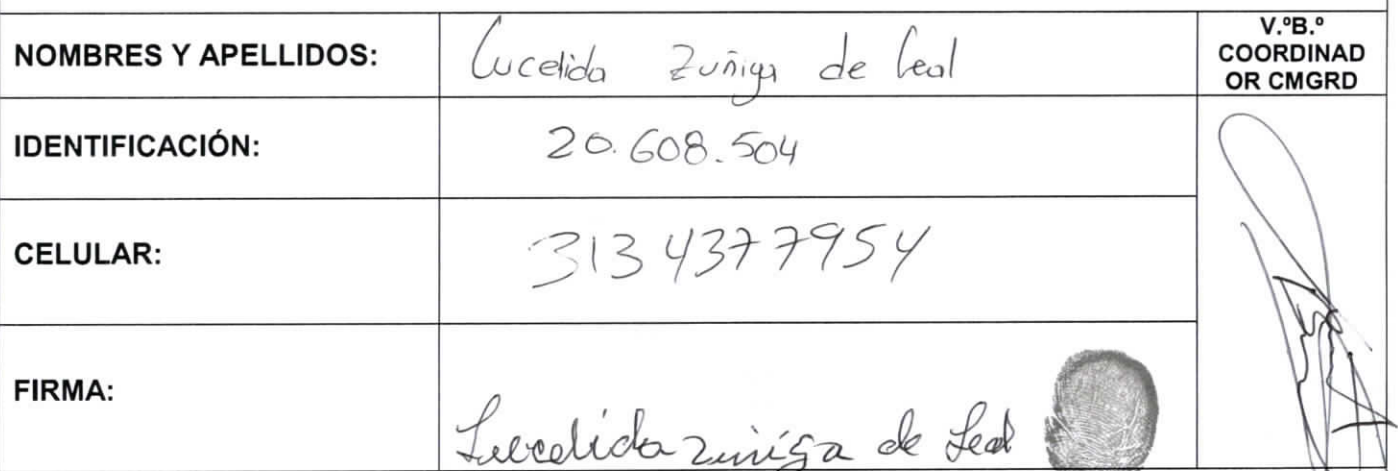 NOMBRES Y APELLIDOS: Lucelida Zuñiga de Leal
V.ºB.º
COORDINAD
OR CMGRD
IDENTIFICACIÓN: 20.608.504
CELULAR: 313 4377954
FIRMA: Lucelida Zuñiga de Leal